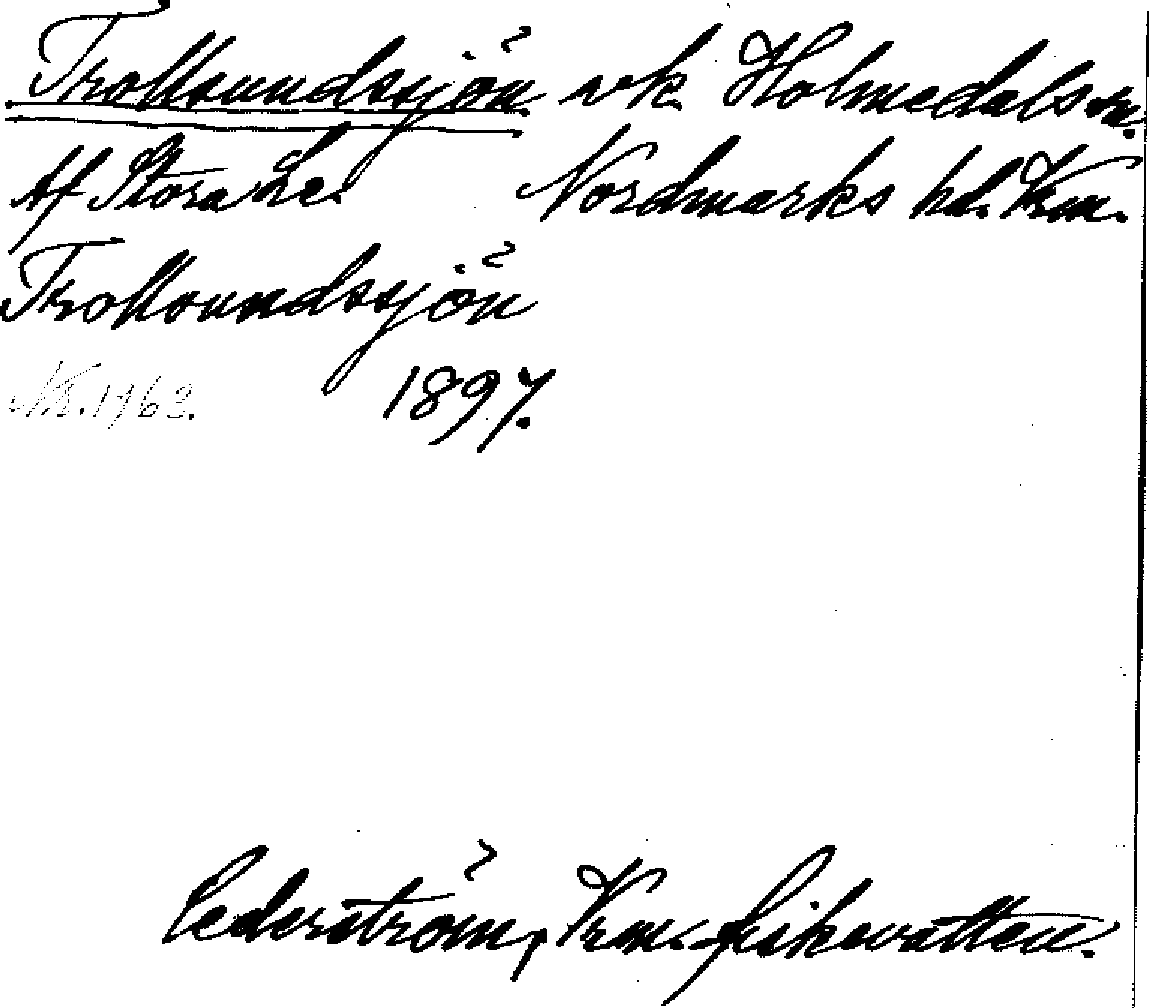 Trollsundssjön vk. Holmedals sn.
Af Stora Le. Nordmarks hd. Vrm.
Trollsundssjön
Nr. 1763. 1897.
Cederström, Vrm. fiskevatten.